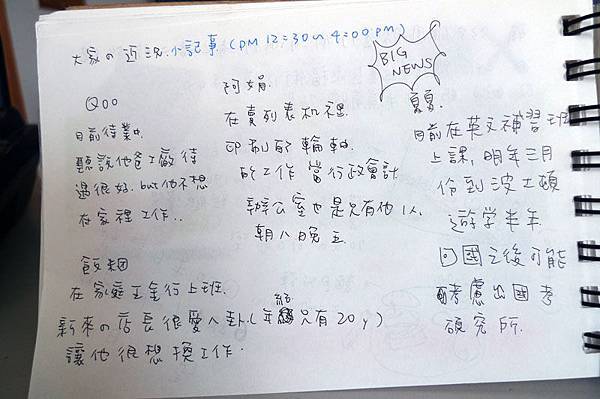 大家の近況.小記事(PM 12=30~4=00 pm)
BIG
NEWS
QOO
目前待業中.
聽說他爸工廠待
遇很好.but他不想
在家裡工作..
飯糰
在家庭五金行上班.
新來の店長很愛八卦.(年紀只有20y)
讓他很想換工作.
阿娟.
在賣列表机裡
印刷的輪軸
的工作 當行政會計
辦公室也是只有他1人.
朝八晚五
夏夏.
目前在英文補習班
上課,明年三月
份到波士頓
遊學半年
回國之後可能
考慮出國考
研究所.